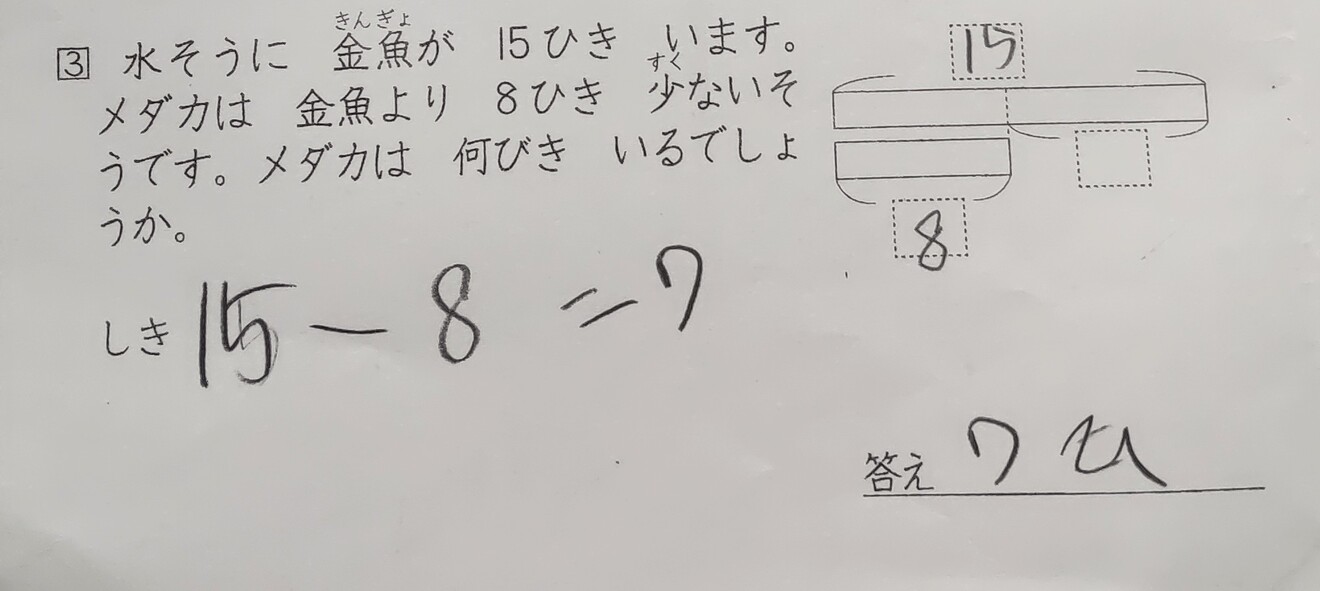 3 水そうに 金魚が 15ひき います。
きんぎょ
メダカは 金魚より 8ひき 少ないそ
すく
うです。メダカは 何びき いるでしょ
うか。
15
8
しき 15－8＝7
答え 7ひ